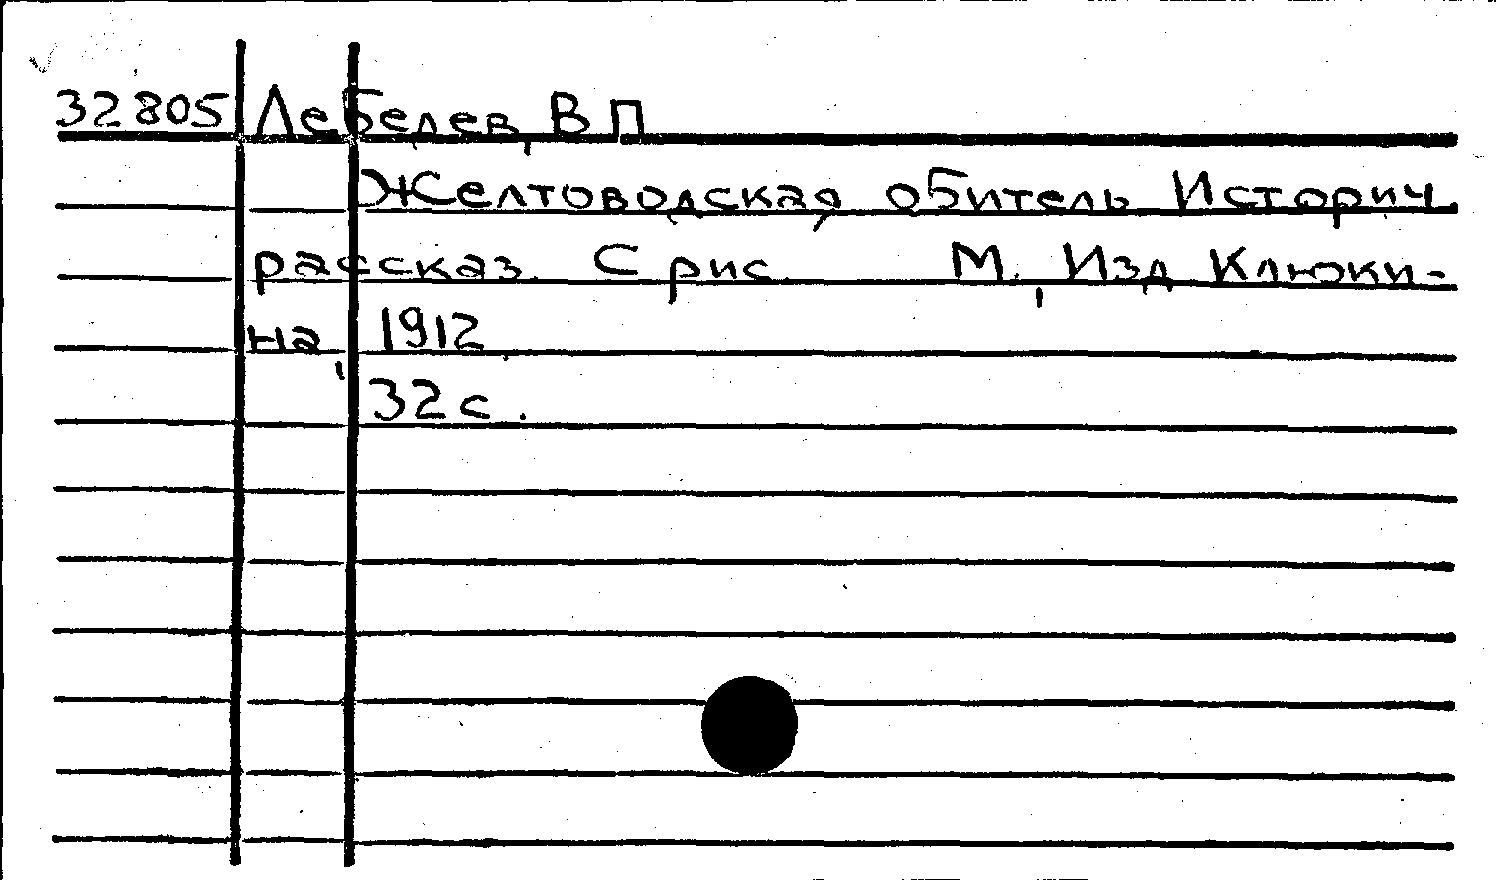 32805 Лебедев, В П
Желтоводская обитель Историч.
рассказ. С рис. М., Изд Клюки-
на, 1912
32 с.